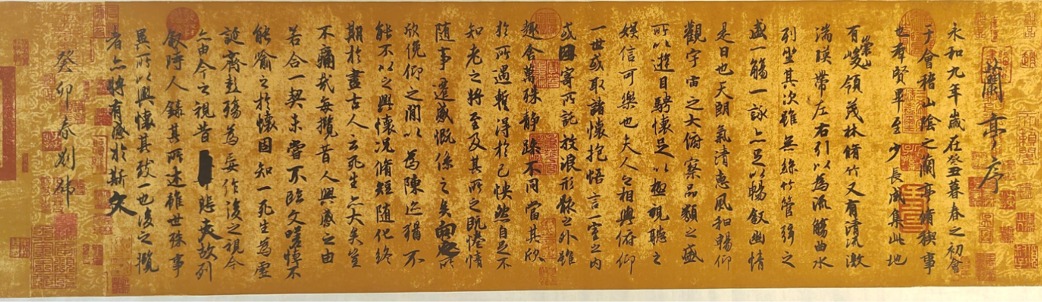 蘭亭序
永和九年歲在癸丑暮春之初會
于會稽山陰之蘭亭脩稧事
也羣賢畢至少長咸集此地
有崇山峻領茂林脩竹又有清流激
湍暎帶左右引以為流觴曲水
列坐其次雖無絲竹管弦之
盛一觴一詠亦足以暢敘幽情
是日也天朗氣清惠風和暢仰
觀宇宙之大俯察品類之盛
所以遊目騁懷足以極視聽之
娛信可樂也夫人之相與俯仰
一世或取諸懷抱悟言一室之內
或因寄所託放浪形骸之外雖
趣舍萬殊靜躁不同當其欣
於所遇暫得於己快然自足不
知老之將至及其所之既惓情
隨事遷感慨係之矣向之所
欣俛仰之間以為陳迹猶不
能不以之興懷況脩短隨化終
期於盡古人云死生亦大矣豈
不痛哉每攬昔人興感之由
若合一契未嘗不臨文嗟悼不
能喻之於懷固知一死生為虛
誕齊彭殤為妄作後之視今
亦由今之視昔悲夫故列
敘時人錄其所述雖世殊事
異所以興懷其致一也後之攬
者亦將有感於斯文
癸卯春劉